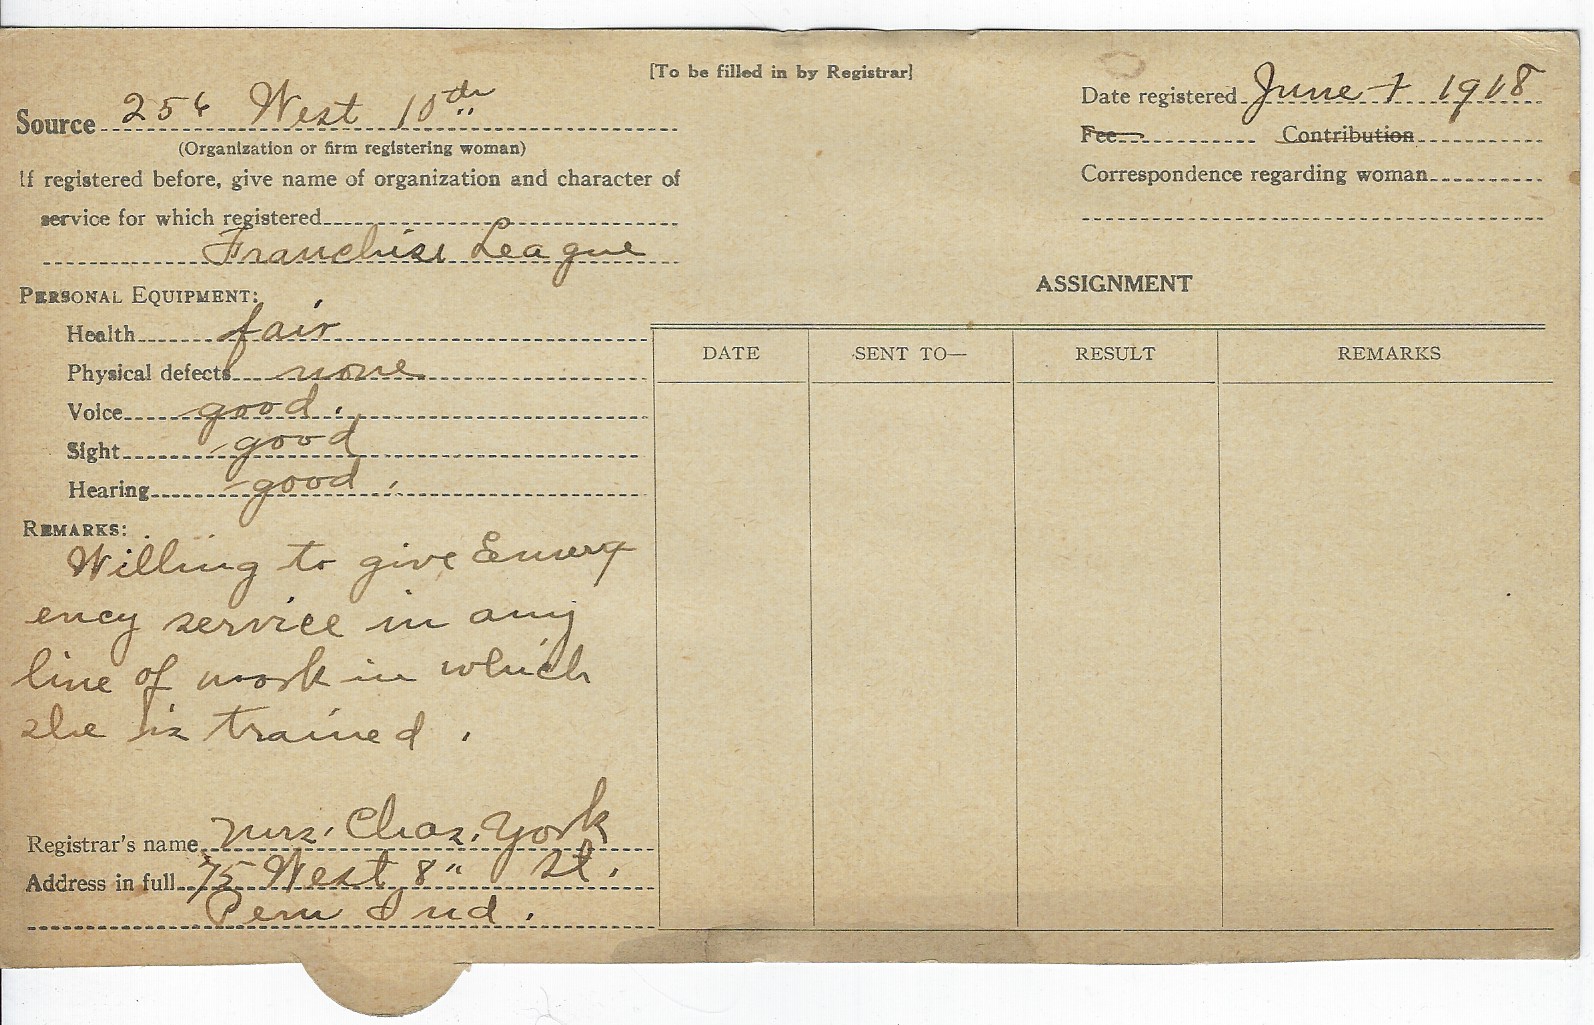 [To be filled in by Registrar]
Source 256 West 10th
(Organization or firm registering woman)
If registered before, give name of organization and character of
service for which registered
Franchise League
PERSONAL EQUIPMENT:
Health fair
Physical defects none
Voice good.
Sight good
Hearing good.
REMARKS:
Willing to give Emerg
ency service in any
line of work in which
she is trained.
Registrar's name Mrs. Chas. York
Address in full 75 West 8" St.
Peru Ind.
Date registered June 1918
Fee Contribution
Correspondence regarding woman
ASSIGNMENT
DATE SENT TO— RESULT REMARKS